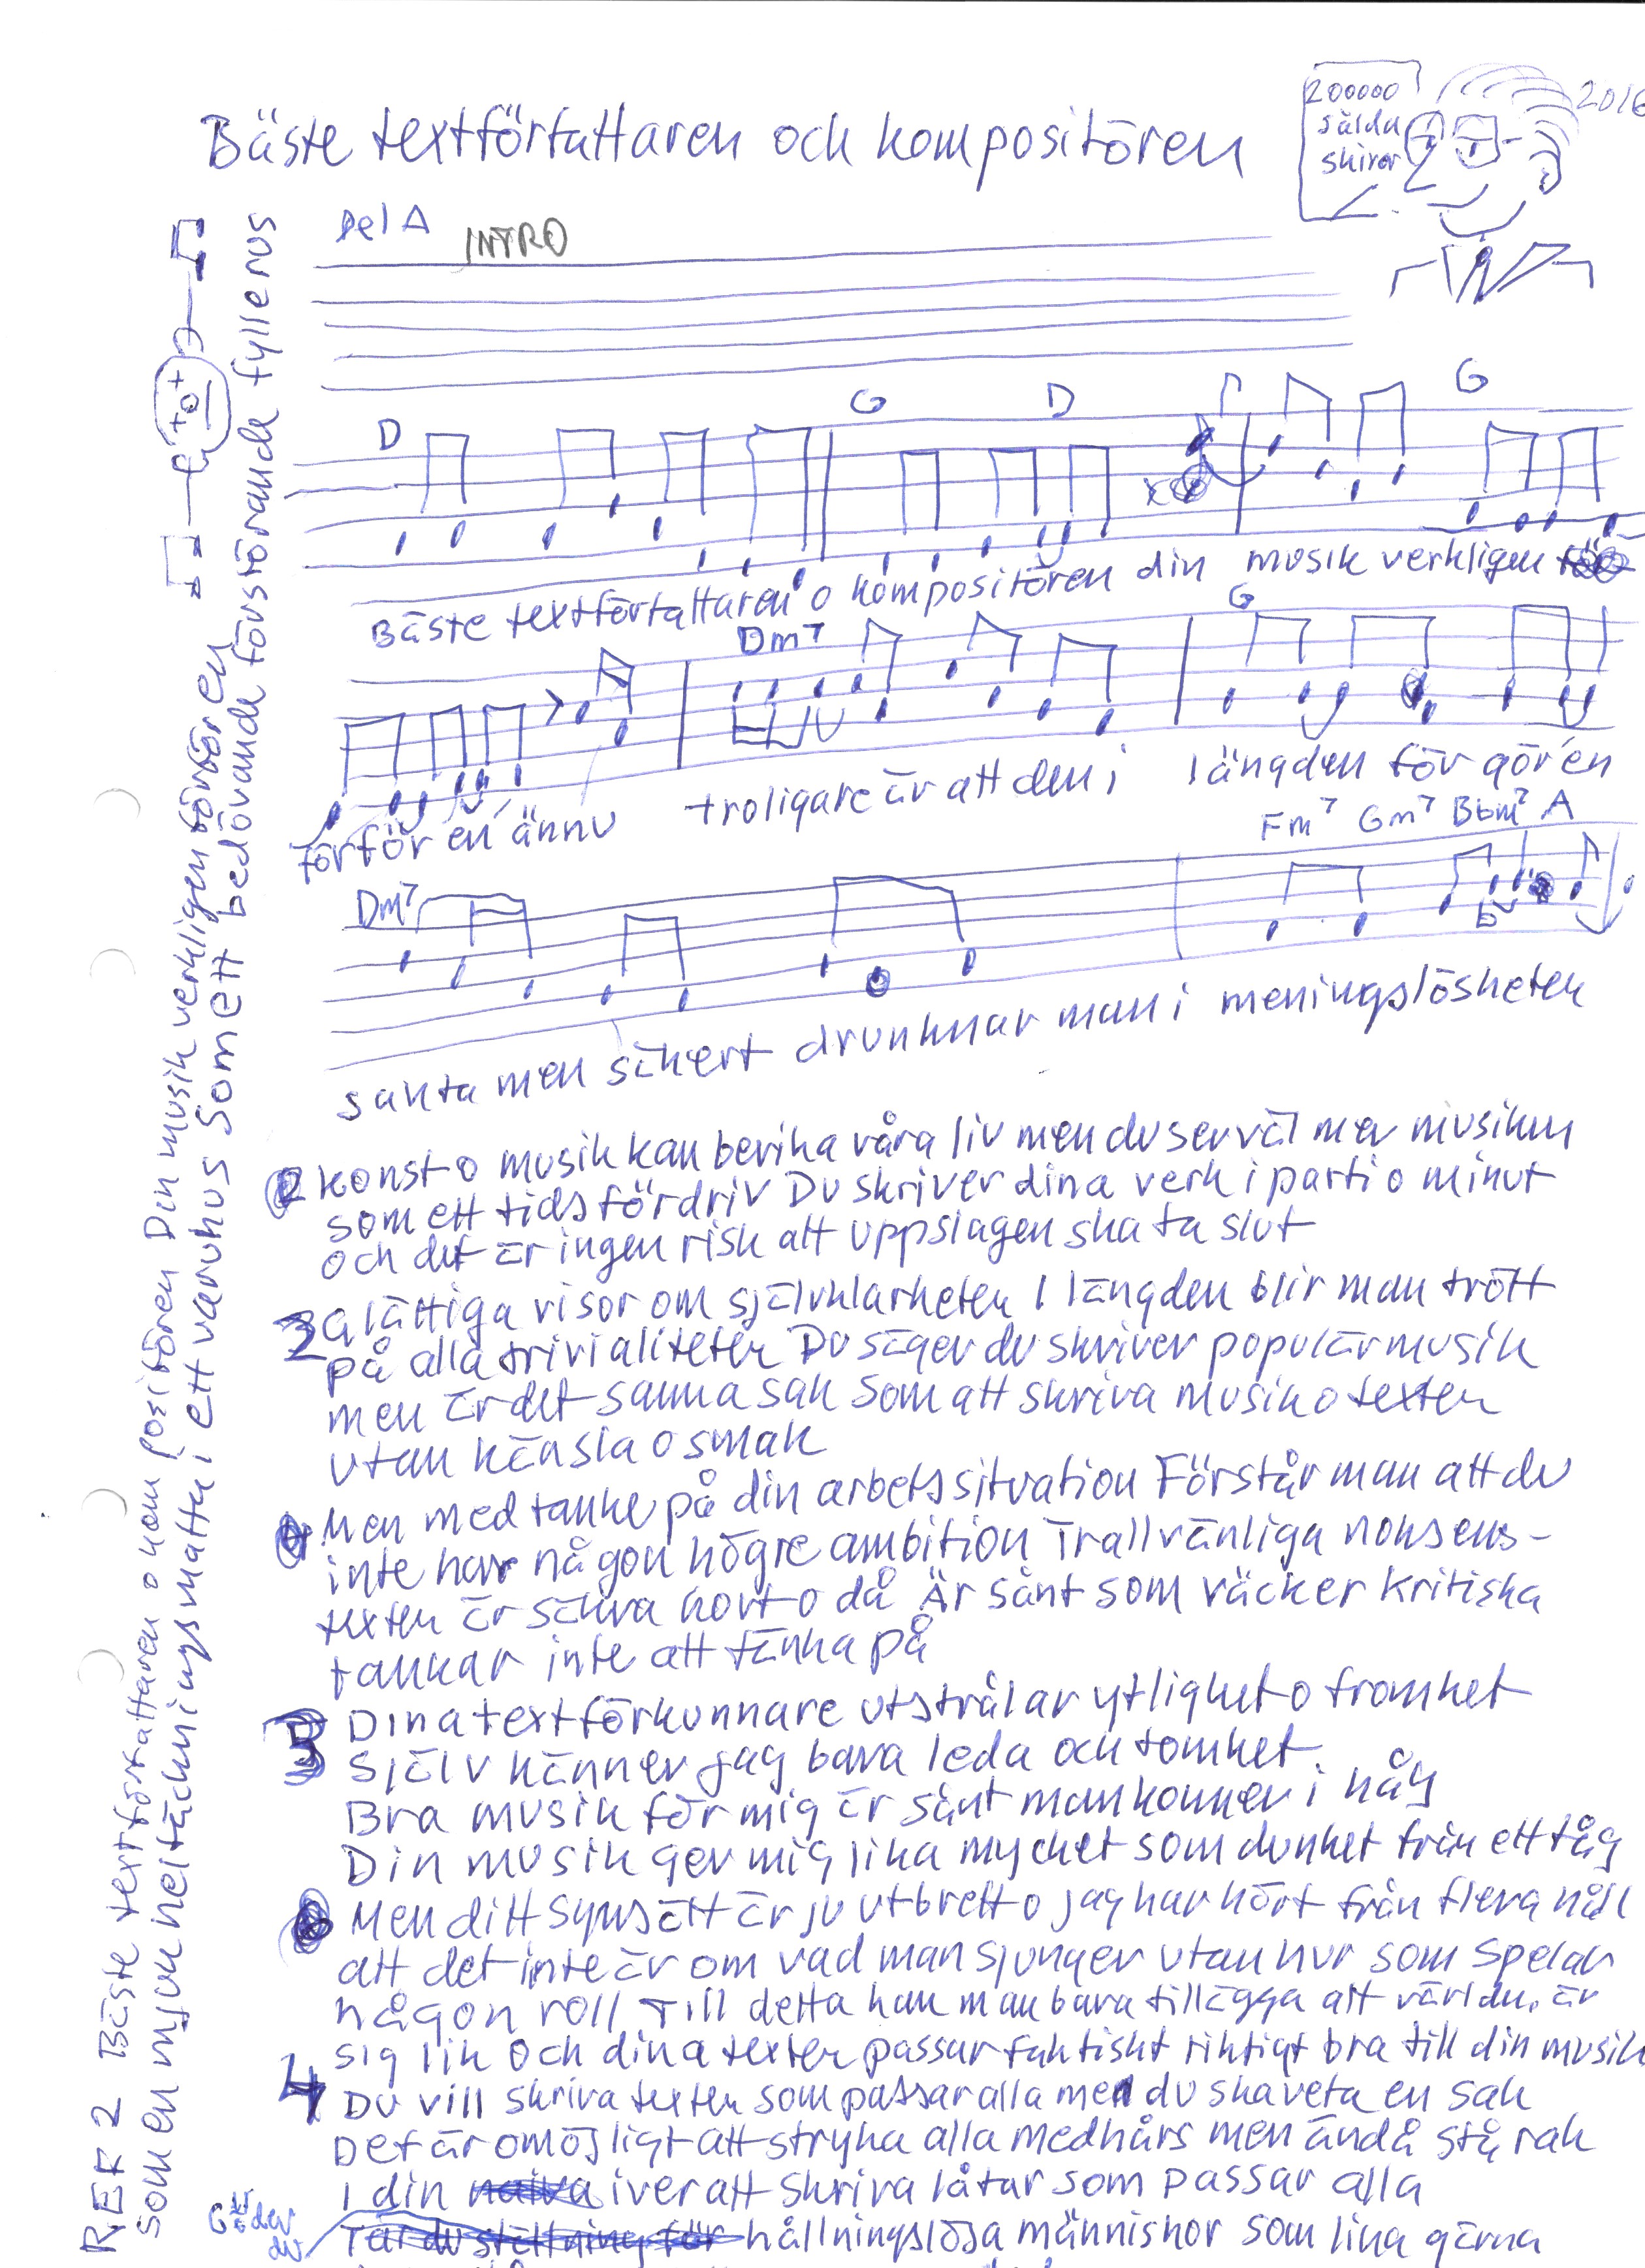 Bäste textförfattaren och kompositören
200000
sålda
skivor
2016
Del A INTRO
D G D G
Bäste textförfattaren o kompositören din musik verkligen
Dm7 G
förför en ännu troligare är att den i längden förgör en
Fm7 Gm7 Bbm7 A
Dm7
sakta men säkert drunknar man i meningslösheten
2 Konst o musik kan berika våra liv men du ser väl mer musiken
som ett tidsfördriv Du skriver dina verk i parti o minut
och det är ingen risk att uppslagen ska ta slut
2 Glättiga visor om självklarheter I längden blir man trött
på alla trivialiteter Du säger du skriver populärmusik
men är det samma sak som att skriva musik o texter
utan känsla o smak
Men med tanke på din arbetssituation Förstår man att du
inte har någon högre ambition Trallvänliga nonsens-
texter är säkra kort o då Är sånt som väcker kritiska
tankar inte att tänka på
3 Dina textförkunnare utstrålar ytlighet o fromhet
Själv känner jag bara leda och tomhet
Bra musik för mig är sånt man kommer i håg
Din musik ger mig lika mycket som dunket från ett tåg
6 Men ditt synsätt är ju utbrett o jag har hört från flera håll
att det inte är om vad man sjunger utan hur som spelar
någon roll Till detta kan man bara tillägga att världen är
sig lik och dina texter passar faktiskt riktigt bra till din musik
4 Du vill skriva texter som passar alla men du ska veta en sak
Det är omöjligt att stryka alla medhårs men ändå stå rak
I din naiva iver att skriva låtar som passar alla
Tar du ställning för hållningslösa människor som lika gärna
REF 2 Bäste textförfattaren o kompositören Din musik verkligen förför en
Som en mjuk heltäckningsmatta i ett varuhus Som ett bedövande förstörande fyllerus